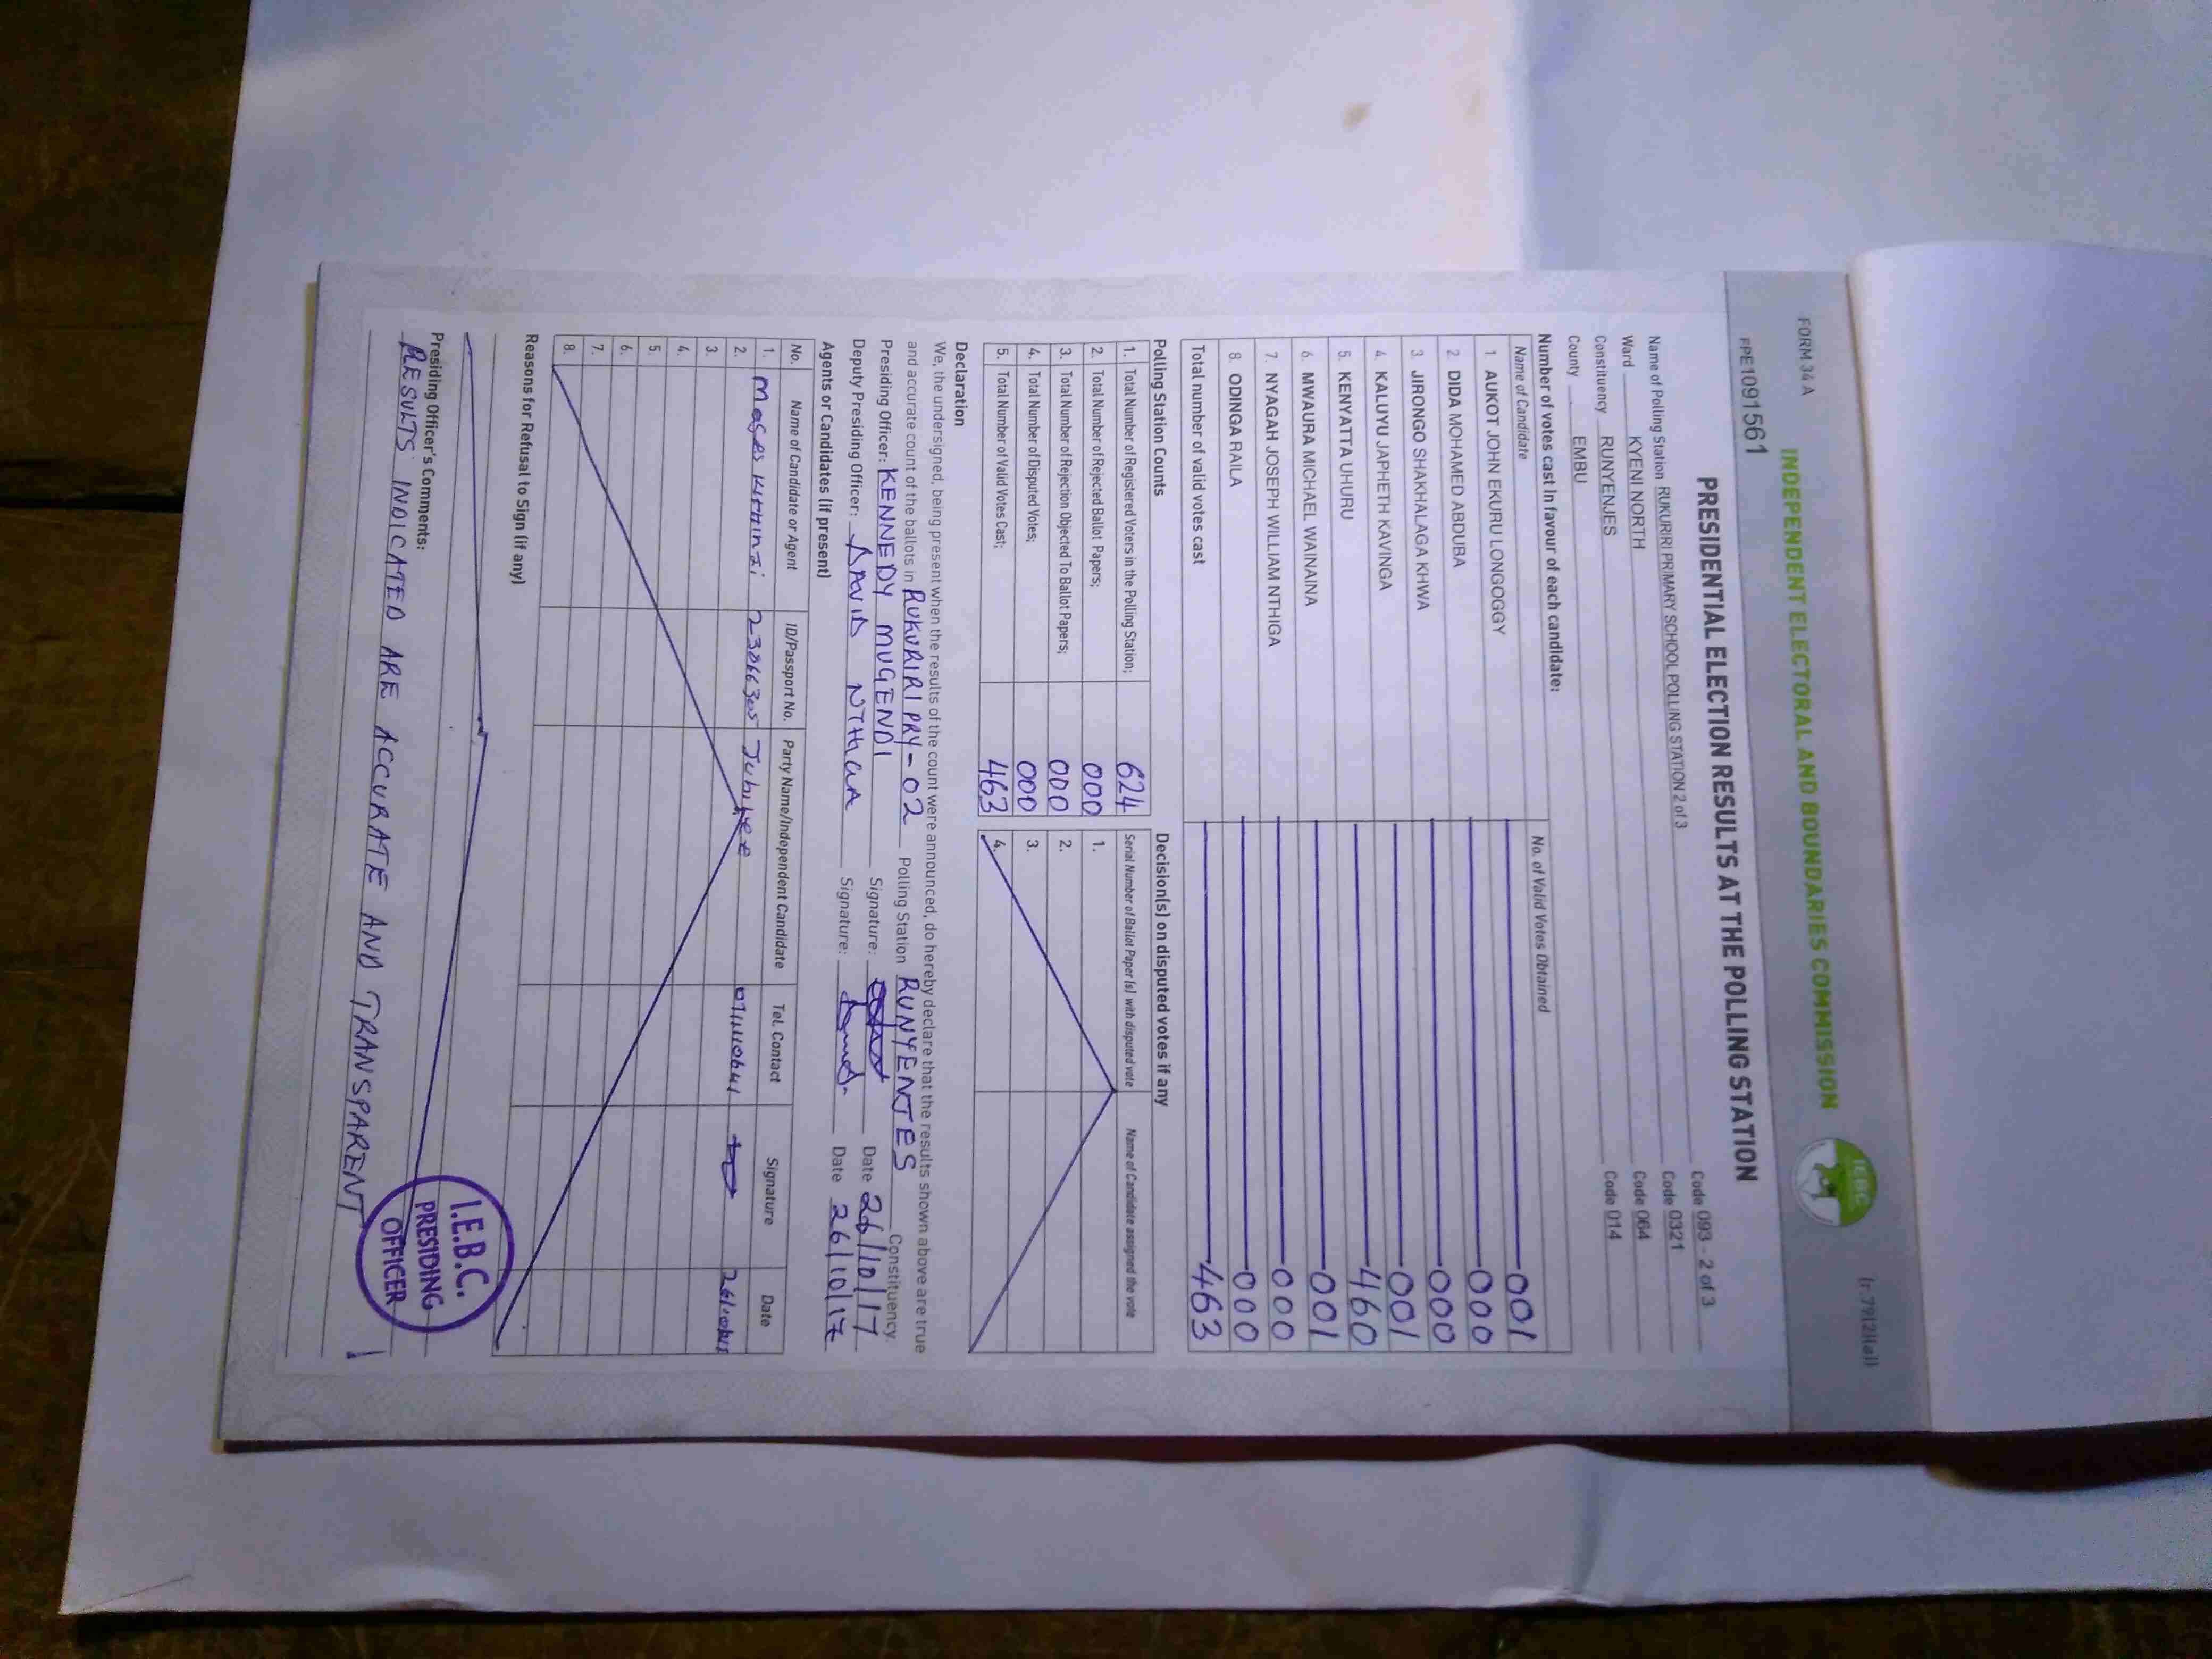 FORM 34 A
(r.79(2)(a))
INDEPENDENT ELECTORAL AND BOUNDARIES COMMISSION
I.E.B.C
FPE1091561
PRESIDENTIAL ELECTION RESULTS AT THE POLLING STATION
Name of Polling Station RUKURIRI PRIMARY SCHOOL POLLING STATION 2 of 3 Code 093 - 2 of 3
Ward KYENI NORTH Code 0321
Constituency RUNYENJES Code 064
County EMBU Code 014
Number of votes cast in favour of each candidate:
Name of Candidate No. of Valid Votes Obtained
1 AUKOT JOHN EKURU LONGOGGY 001
2 DIDA MOHAMED ABDUBA 000
3. JIRONGO SHAKHALAGA KHWA 000
4. KALUYU JAPHETH KAVINGA 001
5. KENYATTA UHURU 460
6. MWAURA MICHAEL WAINAINA 001
7. NYAGAH JOSEPH WILLIAM NTHIGA 000
8. ODINGA RAILA 000
Total number of valid votes cast 463
Polling Station Counts
1. Total Number of Registered Voters in the Polling Station; 624
2. Total Number of Rejected Ballot Papers; 000
3. Total Number of Rejection Objected To Ballot Papers; 000
4. Total Number of Disputed Votes; 000
5. Total Number of Valid Votes Cast; 463
Decision(s) on disputed votes if any
Serial Number of Ballot Paper (s) with disputed vote Name of Candidate assigned the vote
1.
2.
3.
4.
Declaration
We, the undersigned, being present when the results of the count were announced, do hereby declare that the results shown above are true
and accurate count of the ballots in RUKURIRI PRY - 02 Polling Station RUNYENJES Constituency.
Presiding Officer: KENNEDY MUGENDI Signature: Date 26/10/17
Deputy Presiding Officer: DAVID NTHIGA Signature: Date 26/10/17
Agents or Candidates (if present)
No. Name of Candidate or Agent ID/Passport No. Party Name/Independent Candidate Tel. Contact Signature Date
1. Moses Kithinzi 23866305 Jubilee
2.
3.
4.
5.
6.
7.
8.
Reasons for Refusal to Sign (if any)
Presiding Officer's Comments:
RESULTS INDICATED ARE ACCURATE AND TRANSPARENT
I.E.B.C.
PRESIDING
OFFICER